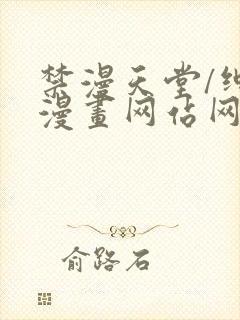 禁漫天堂/纯
漫畫网站网
俞路石